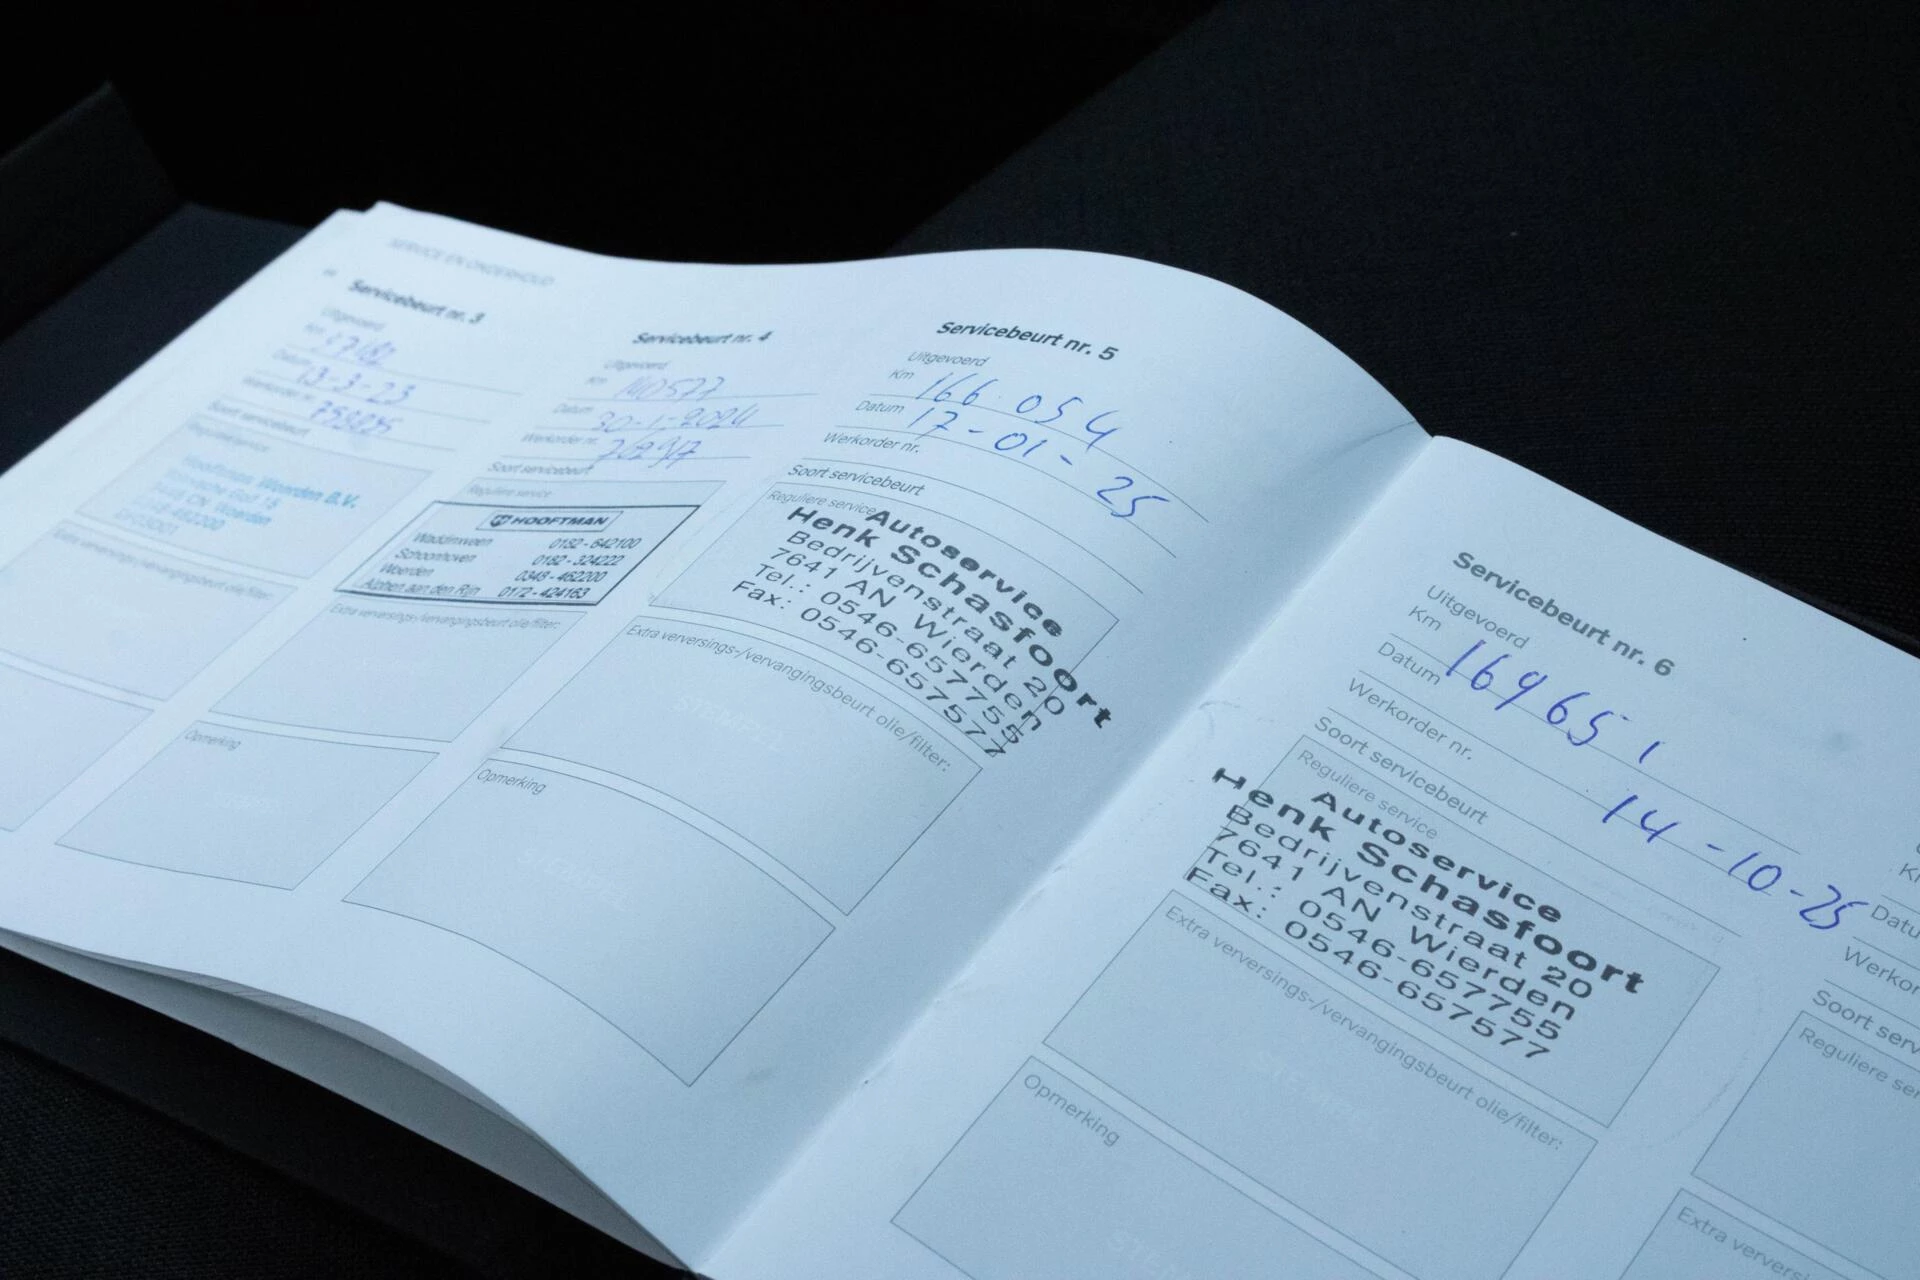 SERVICE EN ONDERHOUD
Servicebeurt nr. 3
Uitgevoerd
Km
Datum 13-3-23
Werkorder nr.
Soort servicebeurt
Reguliere service
Hooftman Woerden B.V.
Extra verversings-/vervangingsbeurt olie/filter:
Servicebeurt nr. 4
Uitgevoerd
Km 140577
Datum 30-1-2024
Werkorder nr.
Soort servicebeurt
Reguliere service
HOOFTMAN
Waddinxveen 0182 - 642100
Schoonhoven 0182 - 324222
Woerden 0348 - 462200
Alphen aan den Rijn 0172 - 424163
Extra verversings-/vervangingsbeurt olie/filter:
Opmerking
Servicebeurt nr. 5
Uitgevoerd
Km 166.054
Datum 17-01-25
Werkorder nr.
Soort servicebeurt
Reguliere service
Autoservice
Henk Schasfoort
Bedrijvenstraat 20
7641 AN Wierden
Tel.: 0546-657755
Fax: 0546-657577
Extra verversings-/vervangingsbeurt olie/filter:
STEMPEL
Opmerking
Servicebeurt nr. 6
Uitgevoerd
Km 169651
Datum 14-10-25
Werkorder nr.
Soort servicebeurt
Reguliere service
Autoservice
Henk Schasfoort
Bedrijvenstraat 20
7641 AN Wierden
Tel.: 0546-657755
Fax: 0546-657577
Extra verversings-/vervangingsbeurt olie/filter:
STEMPEL
Opmerking
Datu
Werkor
Soort serv
Reguliere ser
Extra verver